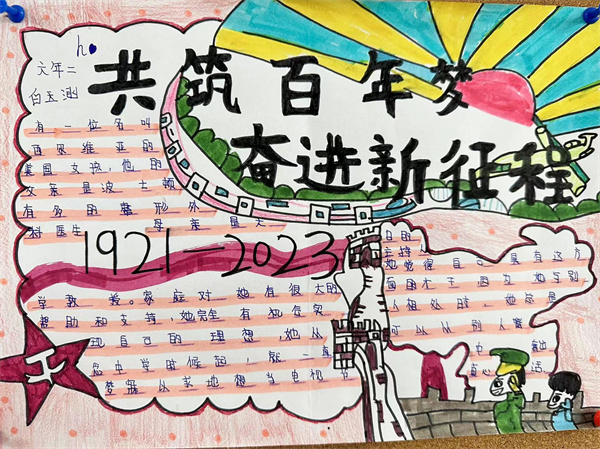 共筑百年梦
奋进新征程
六年二
白玉涵
有一位名叫
西思维亚的
美国女孩,他的
父亲是波士顿
有名的整形外
科医生,母亲是大
学教
1921—2023
爱。家庭对她有很大的
帮助和支持,她完全有机会实
现自己的理想,她从
念中学时候起,就一直
梦寐
当电视节
目的
主持
她觉得自己具有这方
面的才干,因为她与别
人相处时,她总是
可从从别人嘴
中
真心话